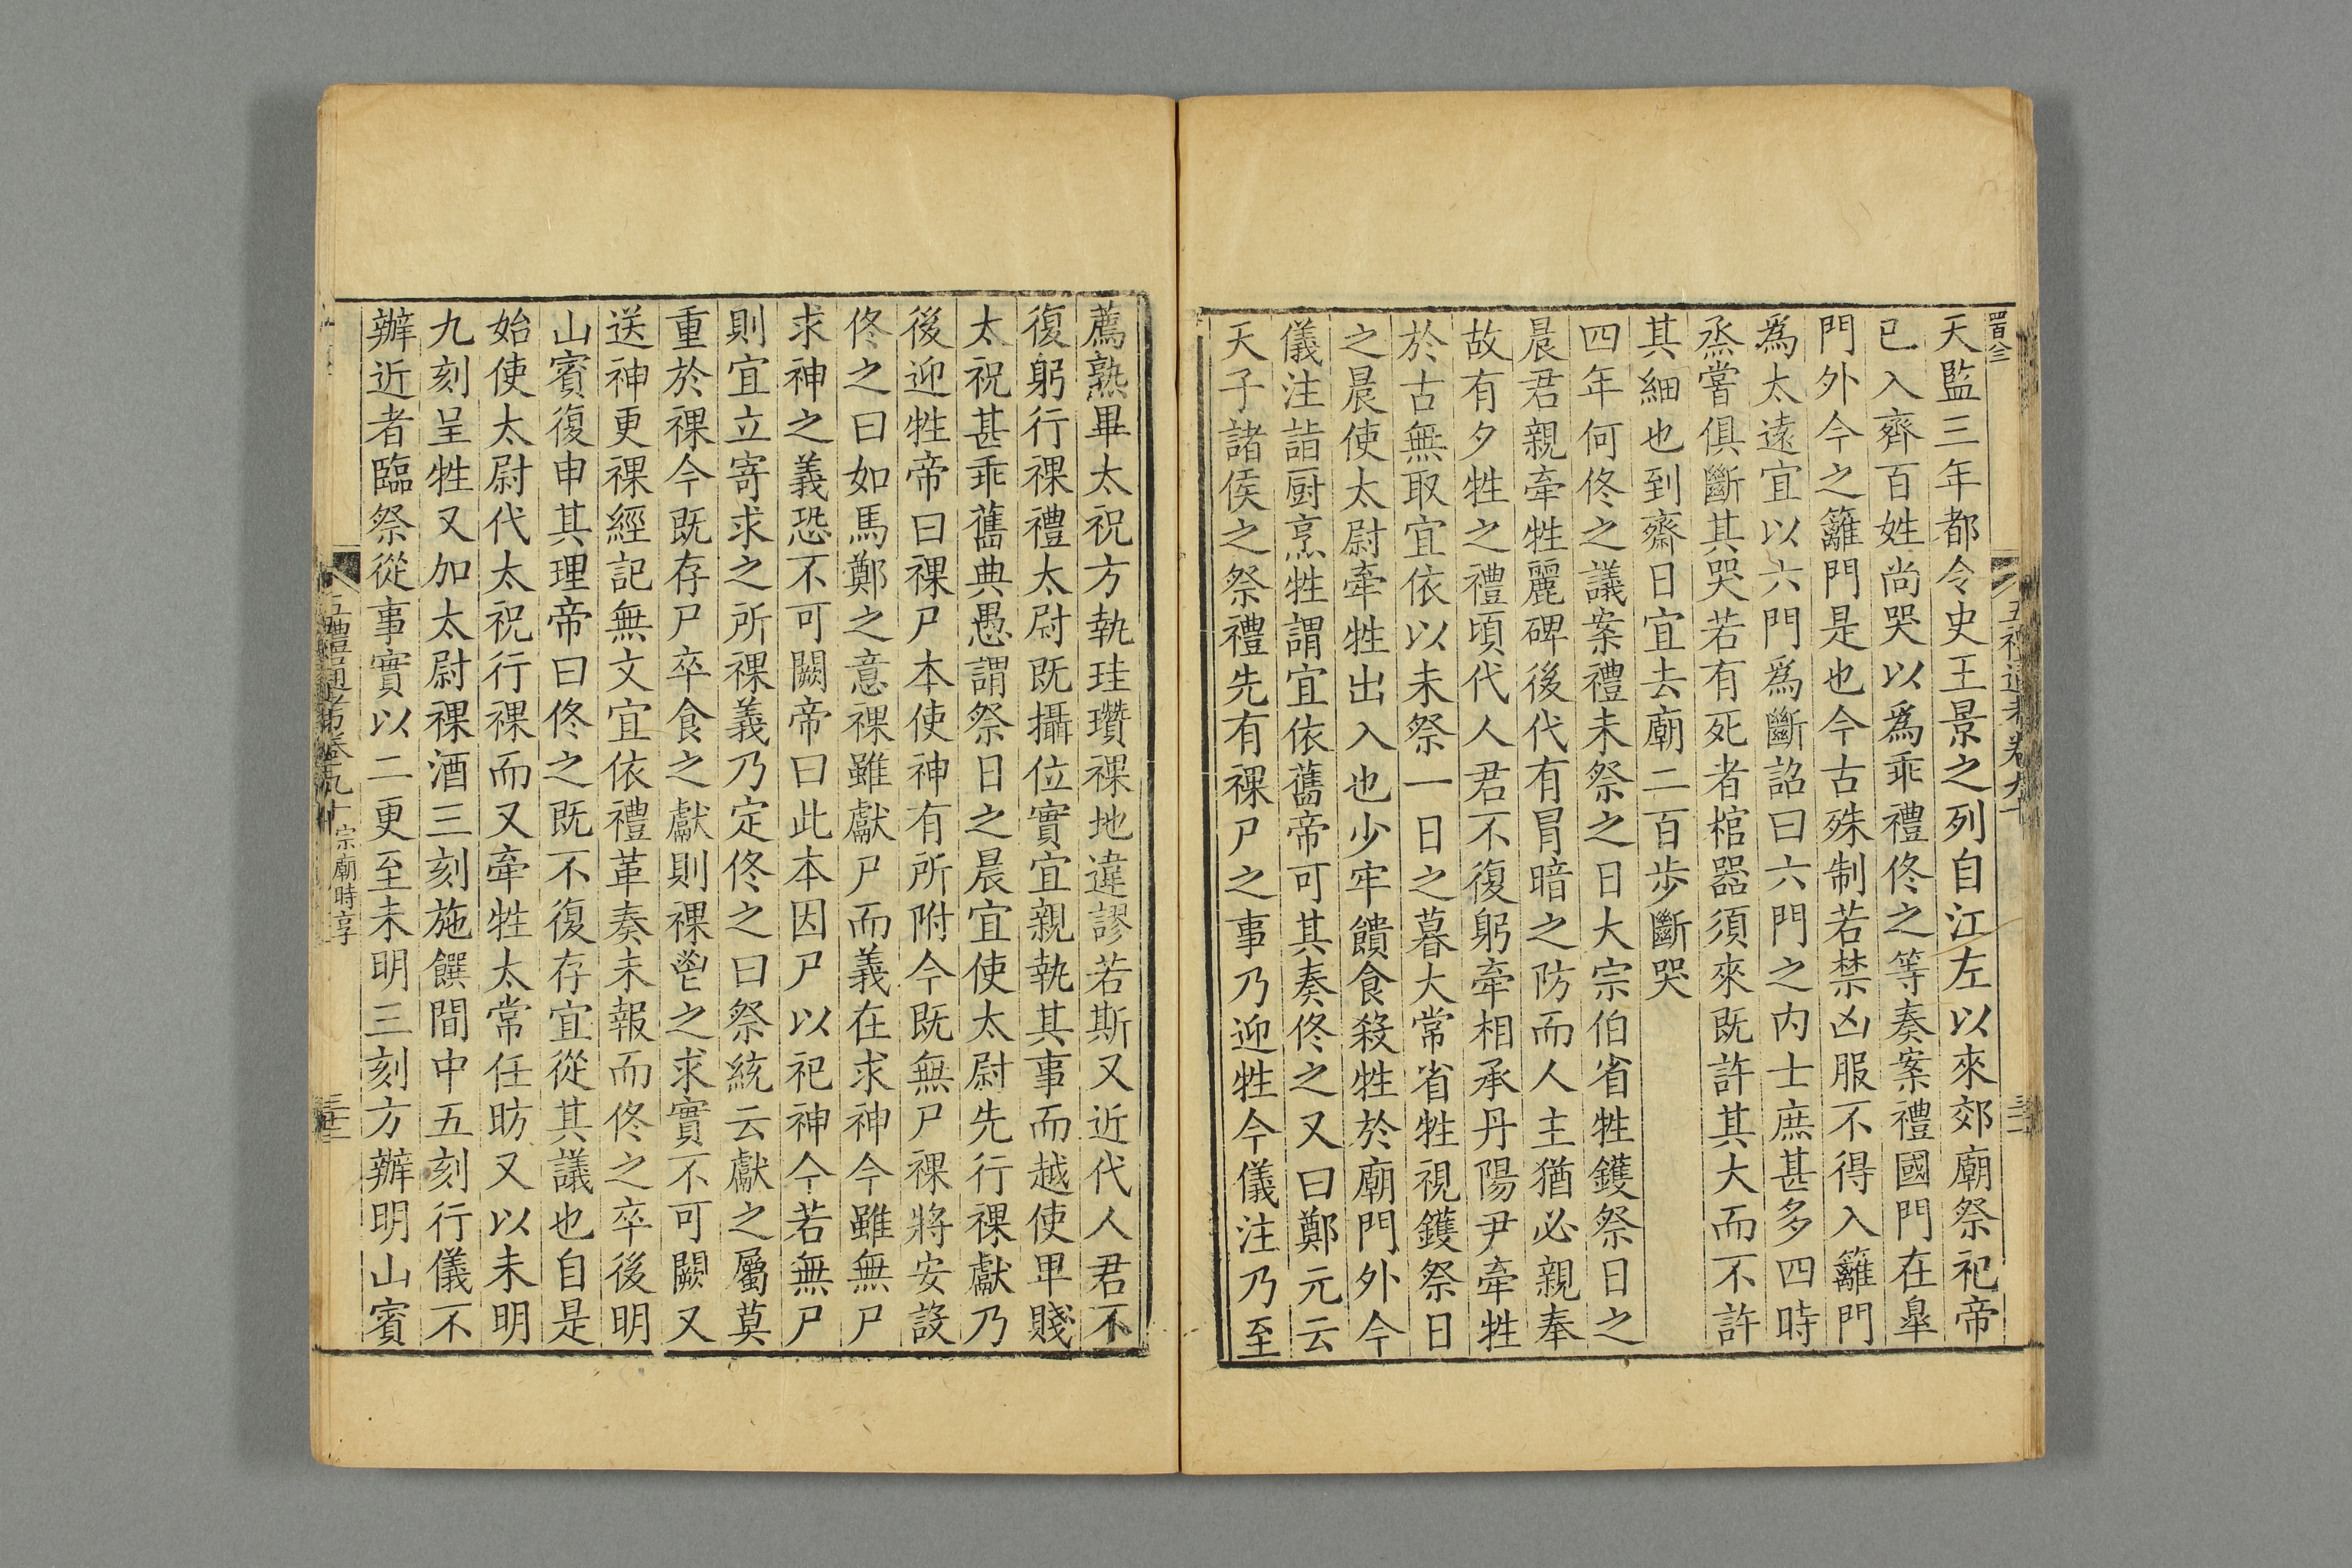 天監三年都令史王景之列自江左以來郊廟祭祀帝
已入齊百姓尚哭以爲乖禮佟之等奏案禮國門在皐
門外今之籬門是也今古殊制若禁凶服不得入籬門
爲太遠宜以六門爲斷詔曰六門之内士庶甚多四時
烝嘗俱斷其哭若有死者棺器須來既許其大而不許
其細也到齋日宜去廟二百步斷哭
四年何佟之議案禮未祭之日大宗伯省牲鑊祭日之
晨君親牽牲麗碑後代有冐暗之防而人主猶必親奉
故有夕牲之禮頃代人君不復躬牽相承丹陽尹牽牲
於古無取宜依以未祭一日之暮大常省牲視鑊祭日
之晨使太尉牽牲出入也少牢饋食殺牲於廟門外今
儀注詣厨烹牲謂宜依舊帝可其奏佟之又曰鄭元云
天子諸侯之祭禮先有祼尸之事乃迎牲今儀注乃至
薦熟畢太祝方執珪瓚祼地違謬若斯又近代人君不
復躬行祼禮太尉既攝位實宜親執其事而越使卑賤
太祝甚乖舊典愚謂祭日之晨宜使太尉先行祼獻乃
後迎牲帝曰祼尸本使神有所附今既無尸祼將安設
佟之曰如馬鄭之意祼雖獻尸而義在求神今雖無尸
求神之義恐不可闕帝曰此本因尸以祀神今若無尸
則宜立寄求之所祼義乃定佟之曰祭統云獻之屬莫
重於祼今既存尸卒食之獻則祼鬯之求實不可闕又
送神更祼經記無文宜依禮革奏未報而佟之卒後明
山賓復申其理帝曰佟之既不復存宜從其議也自是
始使太尉代太祝行祼而又牽牲太常任昉又以未明
九刻呈牲又加太尉祼酒三刻施饌間中五刻行儀不
辦近者臨祭從事實以二更至未明三刻方辦明山賓
五禮通考卷九十
宗廟時享